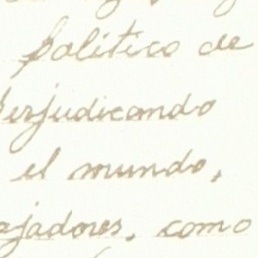 político de
perjudicando
el mundo,
ajadores, como